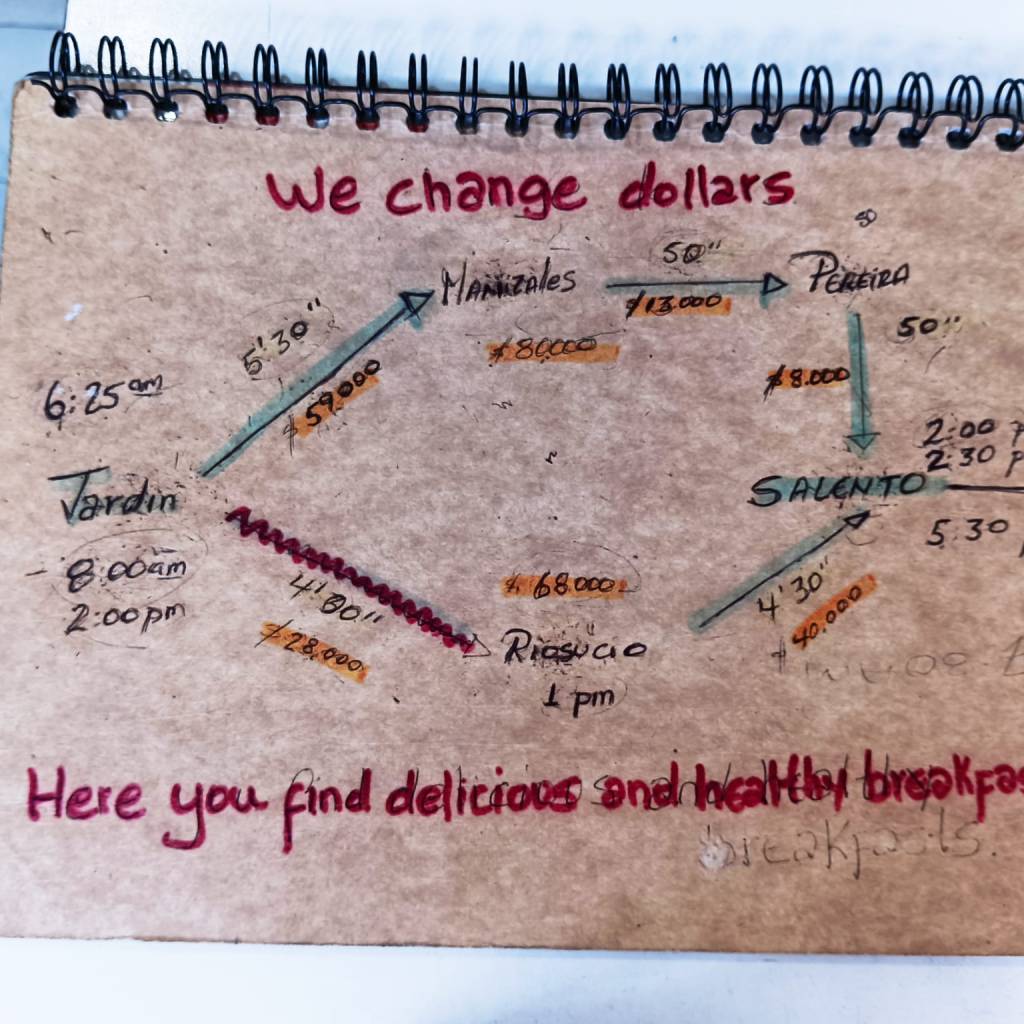 We change dollars
50"
Manizales
Pereira
$13.000
5'30"
50"
$80000
$59.000
$8.000
6:25am
2:00
2:30 p
Jardin
SALENTO
5.30
8:00am
$68.000
4'30"
4'00"
2:00pm
$40.000
$28.000
Riosucio
1 pm
Here you find delicious and healthy breakfas
breakfasts.